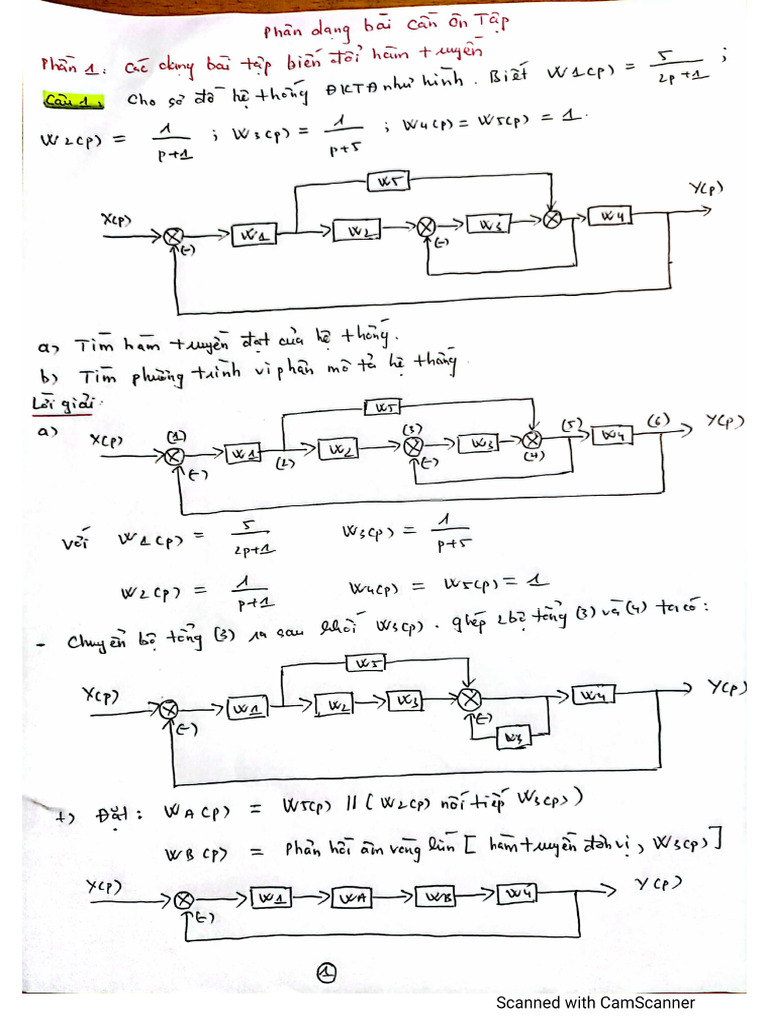 Phân dạng bài cần ôn tập
Phần 1: Các dạng bài tập biến đổi hàm truyền
Câu 1: Cho sơ đồ hệ thống ĐKTĐ như hình. Biết W1(p) = 5/(2p+1) ;
W2(p) = 1/(p+1) ; W3(p) = 1/(p+5) ; W4(p) = W5(p) = 1.
W5
X(p) (-) W1 W2 (-) W3 W4 Y(p)
a) Tìm hàm truyền đạt của hệ thống.
b) Tìm phương trình vi phân mô tả hệ thống.
Lời giải:
a)
W5
X(p) (1) (-) W1 (2) W2 (3) (-) W3 (4) (5) W4 (6) Y(p)
Với W1(p) = 5/(2p+1) W3(p) = 1/(p+5)
W2(p) = 1/(p+1) W4(p) = W5(p) = 1
- Chuyển bộ tổng (3) ra sau khối W3(p). ghép 2 bộ tổng (3) và (4) ta có:
W5
X(p) (-) W1 W2 W3 (-) W4 Y(p)
W3
+) Đặt: WA(p) = W5(p) // (W2(p) nối tiếp W3(p))
WB(p) = Phản hồi âm vòng kín [hàm truyền đơn vị, W3(p)]
X(p) (-) W1 WA WB W4 Y(p)
1
Scanned with CamScanner